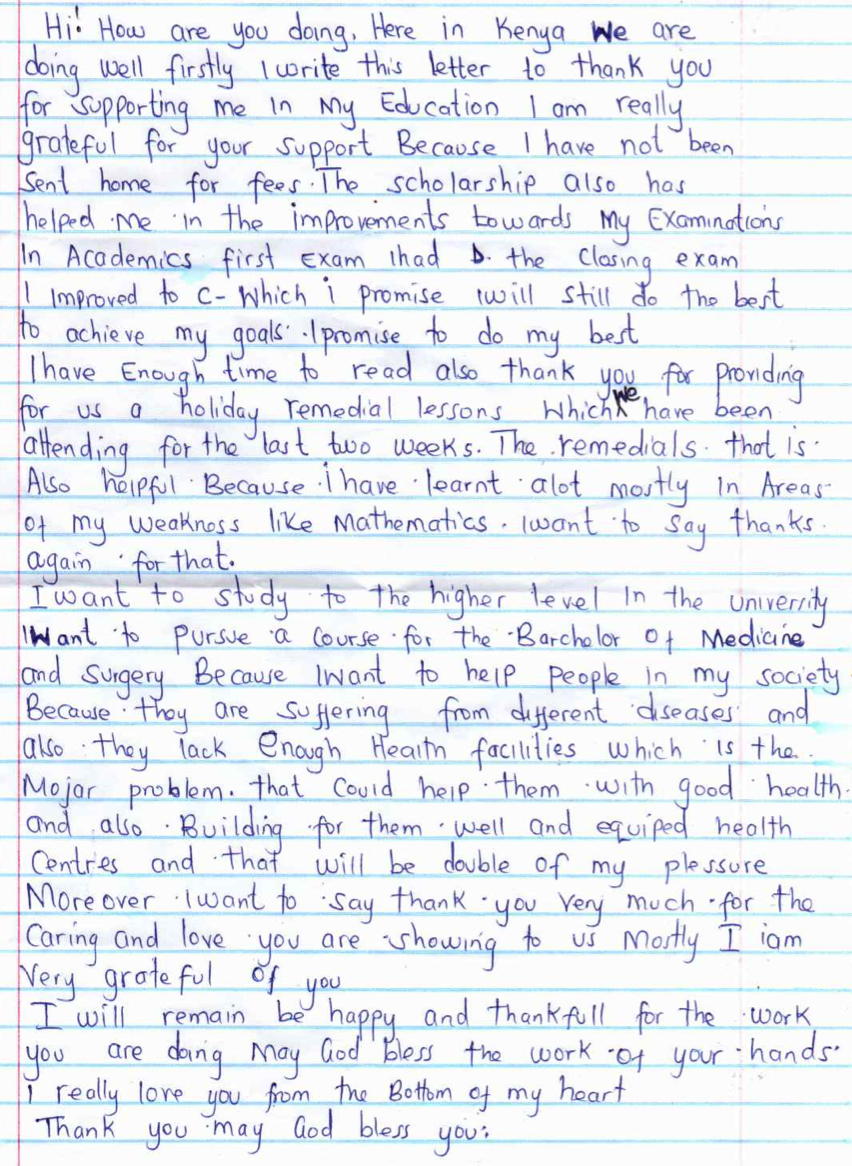 Hi! How are you doing. Here in Kenya we are
doing well firstly I write this letter to thank you
for supporting me In My Education I am really
grateful for your support Because I have not been
sent home for fees. The scholarship also has
helped me in the improvements towards My Examinations
In Academics first Exam ihad D. the closing exam
I Improved to C- Which i promise iwill still do the best
to achieve my goals. Ipromise to do my best
Ihave Enough time to read also thank you for providing
for us a holiday remedial lessons which we have been
attending for the last two weeks. The remedials that is
Also helpful Because ihave learnt alot mostly In Areas
of my weakness like Mathematics. iwant to say thanks
again for that.
I want to study to the higher level In the University
IWant to Pursue a Course for the Barchelor Of Medicine
and Surgery Because IWant to help People in my society
Because they are suffering from different diseases and
also they lack Enough Health facilities which is the
Mojar problem. that Could help them with good health.
and also Building for them well and equiped health
Centres and that will be double of my plessure
Moreover iwant to say thank you very much for the
Caring and love you are showing to us Mostly I iam
Very grateful of you
I will remain be happy and thankfull for the work
you are doing May God bless the work of your hands.
I really love you from the Bottom of my heart
Thank you may God bless you.